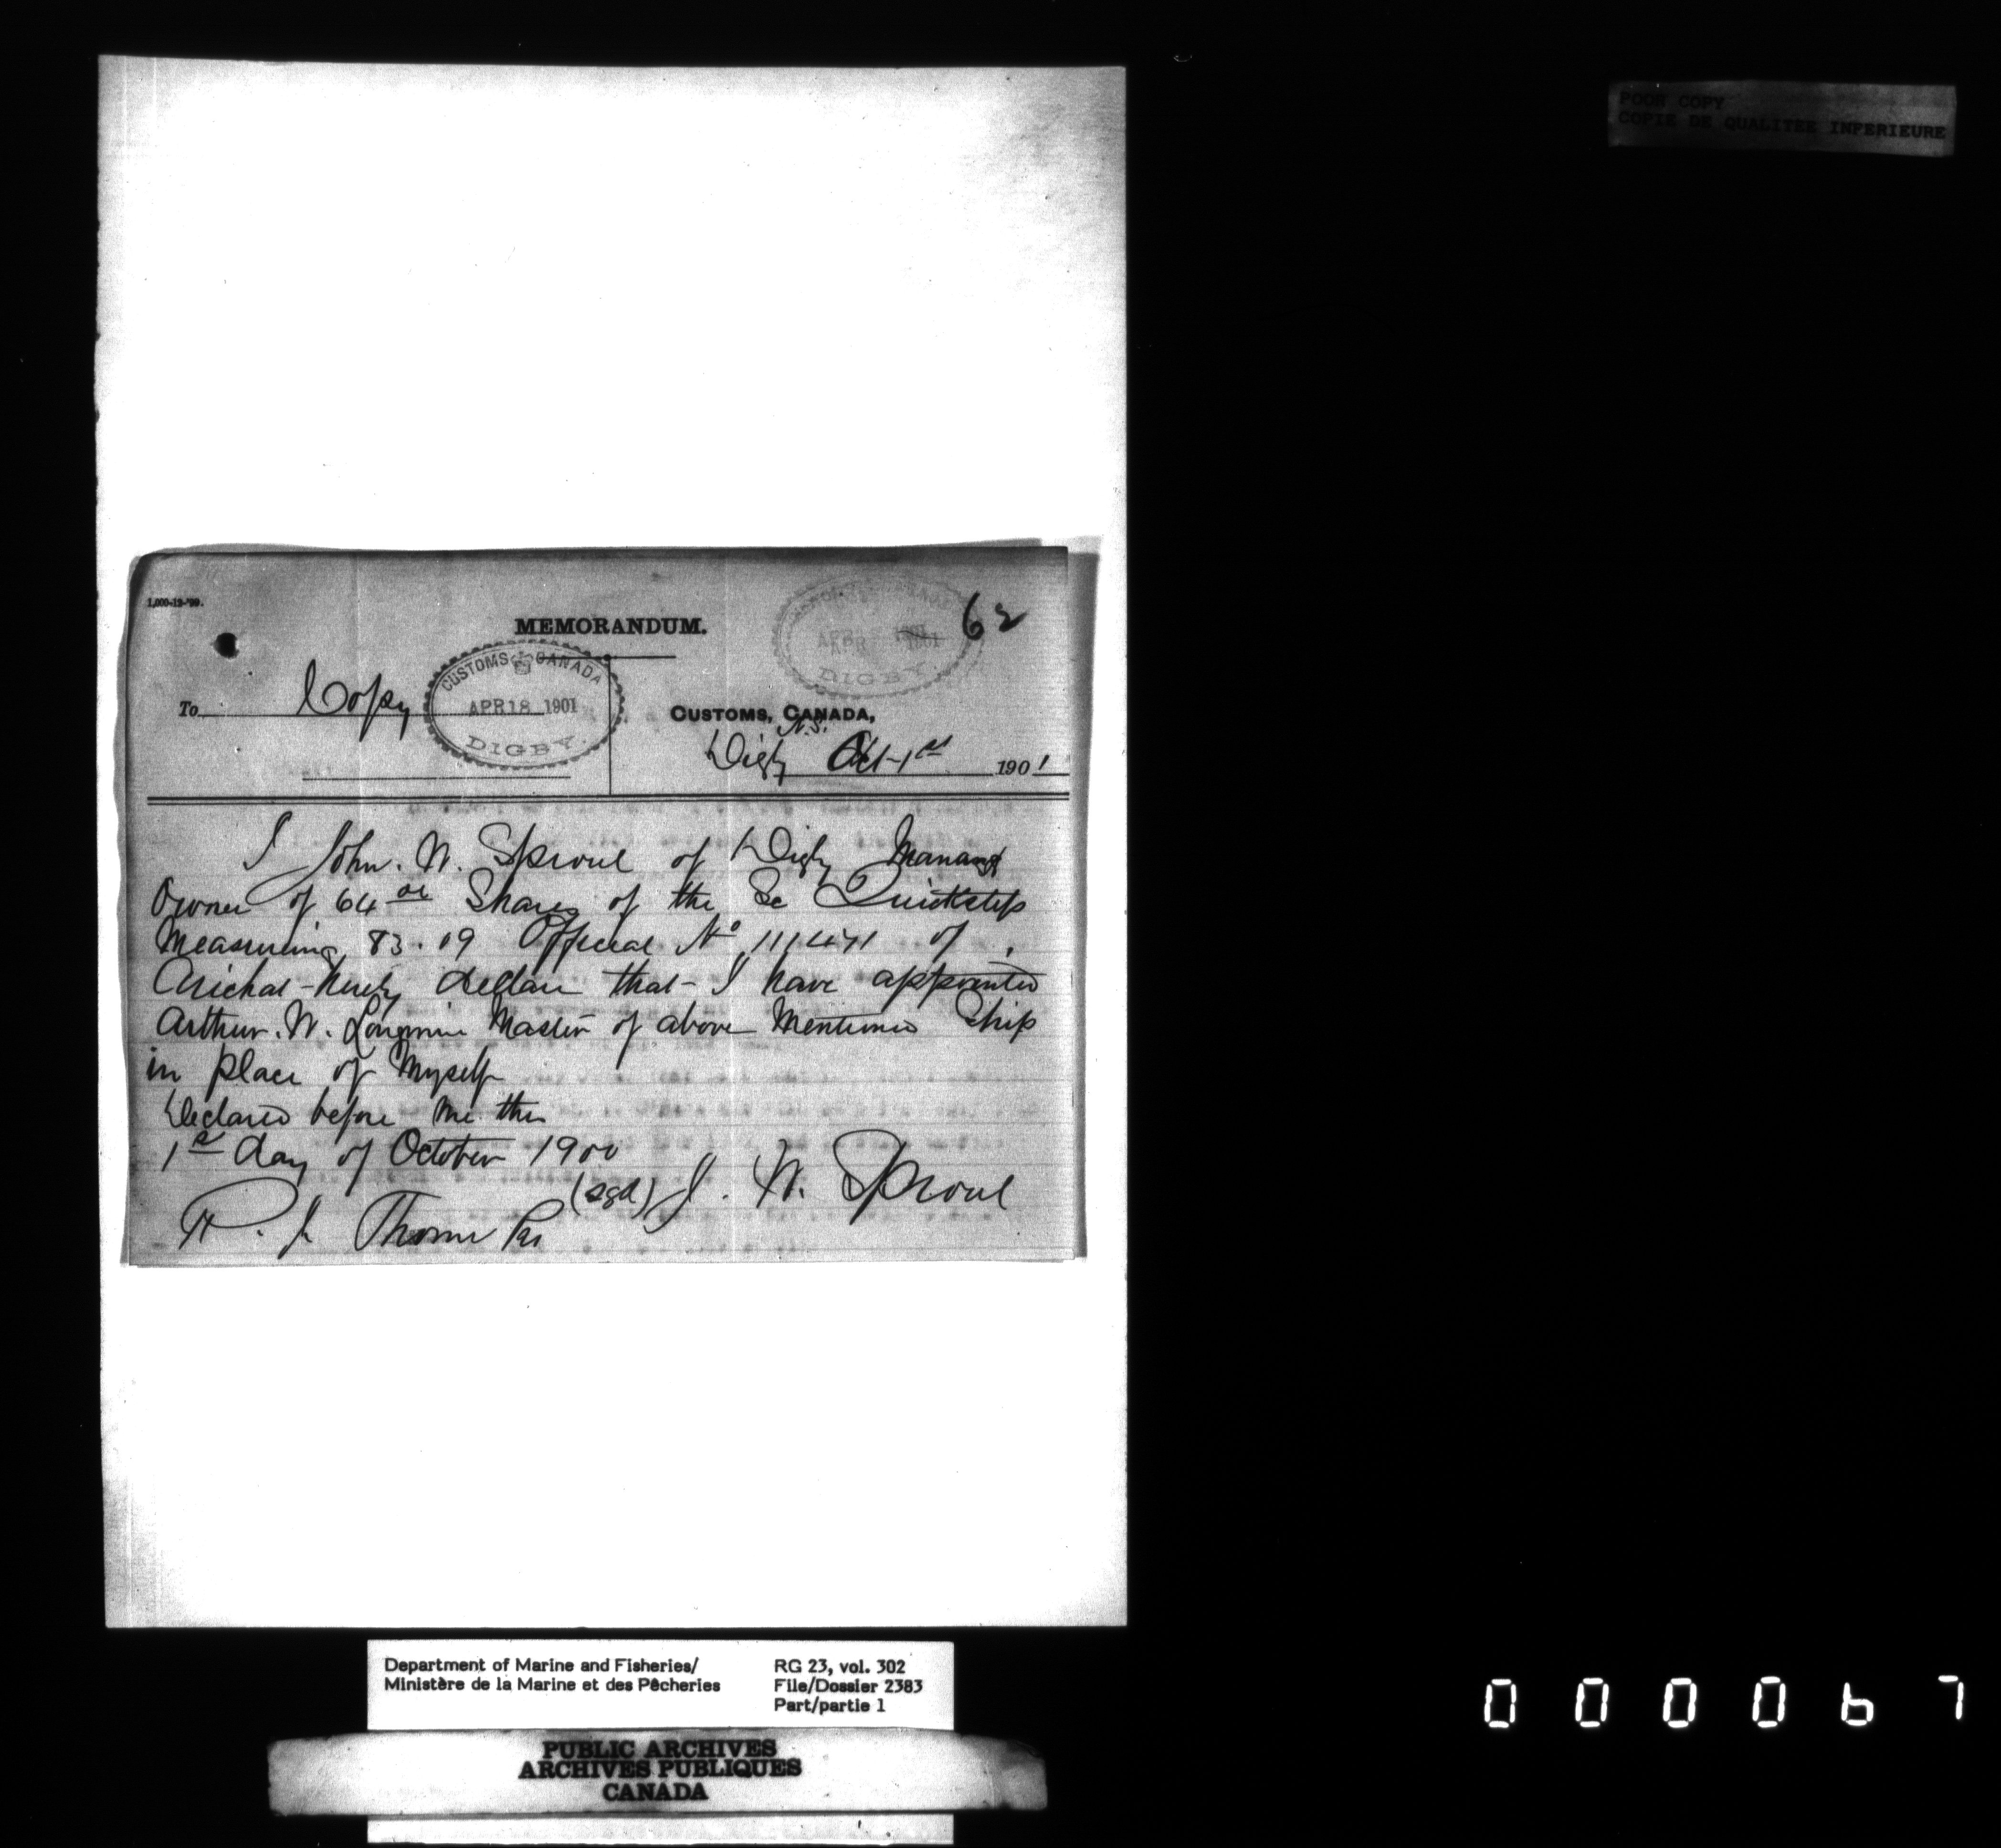 POOR COPY
COPIE DE QUALITEE INFERIEURE
1,000-12-'99.
MEMORANDUM.
62
To Copy
CUSTOMS CANADA
APR 18 1901
DIGBY.
APR 1901
DIGBY.
CUSTOMS, CANADA,
N.S.
Digby Oct 1st 1901
I John. W. Sproul of Digby
Owner of 64 Shares of the Sc Quickstep
Measuring 83.09 Official No 111471 of
Arichat hereby declare that I have appointed
Arthur. W. Longmire Master of above Mentioned Ship
in place of Myself
Declared before me this
1st day of October 1900
(sgd) J. W. Sproul
Thorne
Department of Marine and Fisheries/
Ministère de la Marine et des Pêcheries
RG 23, vol. 302
File/Dossier 2383
Part/partie 1
PUBLIC ARCHIVES
ARCHIVES PUBLIQUES
CANADA
000067